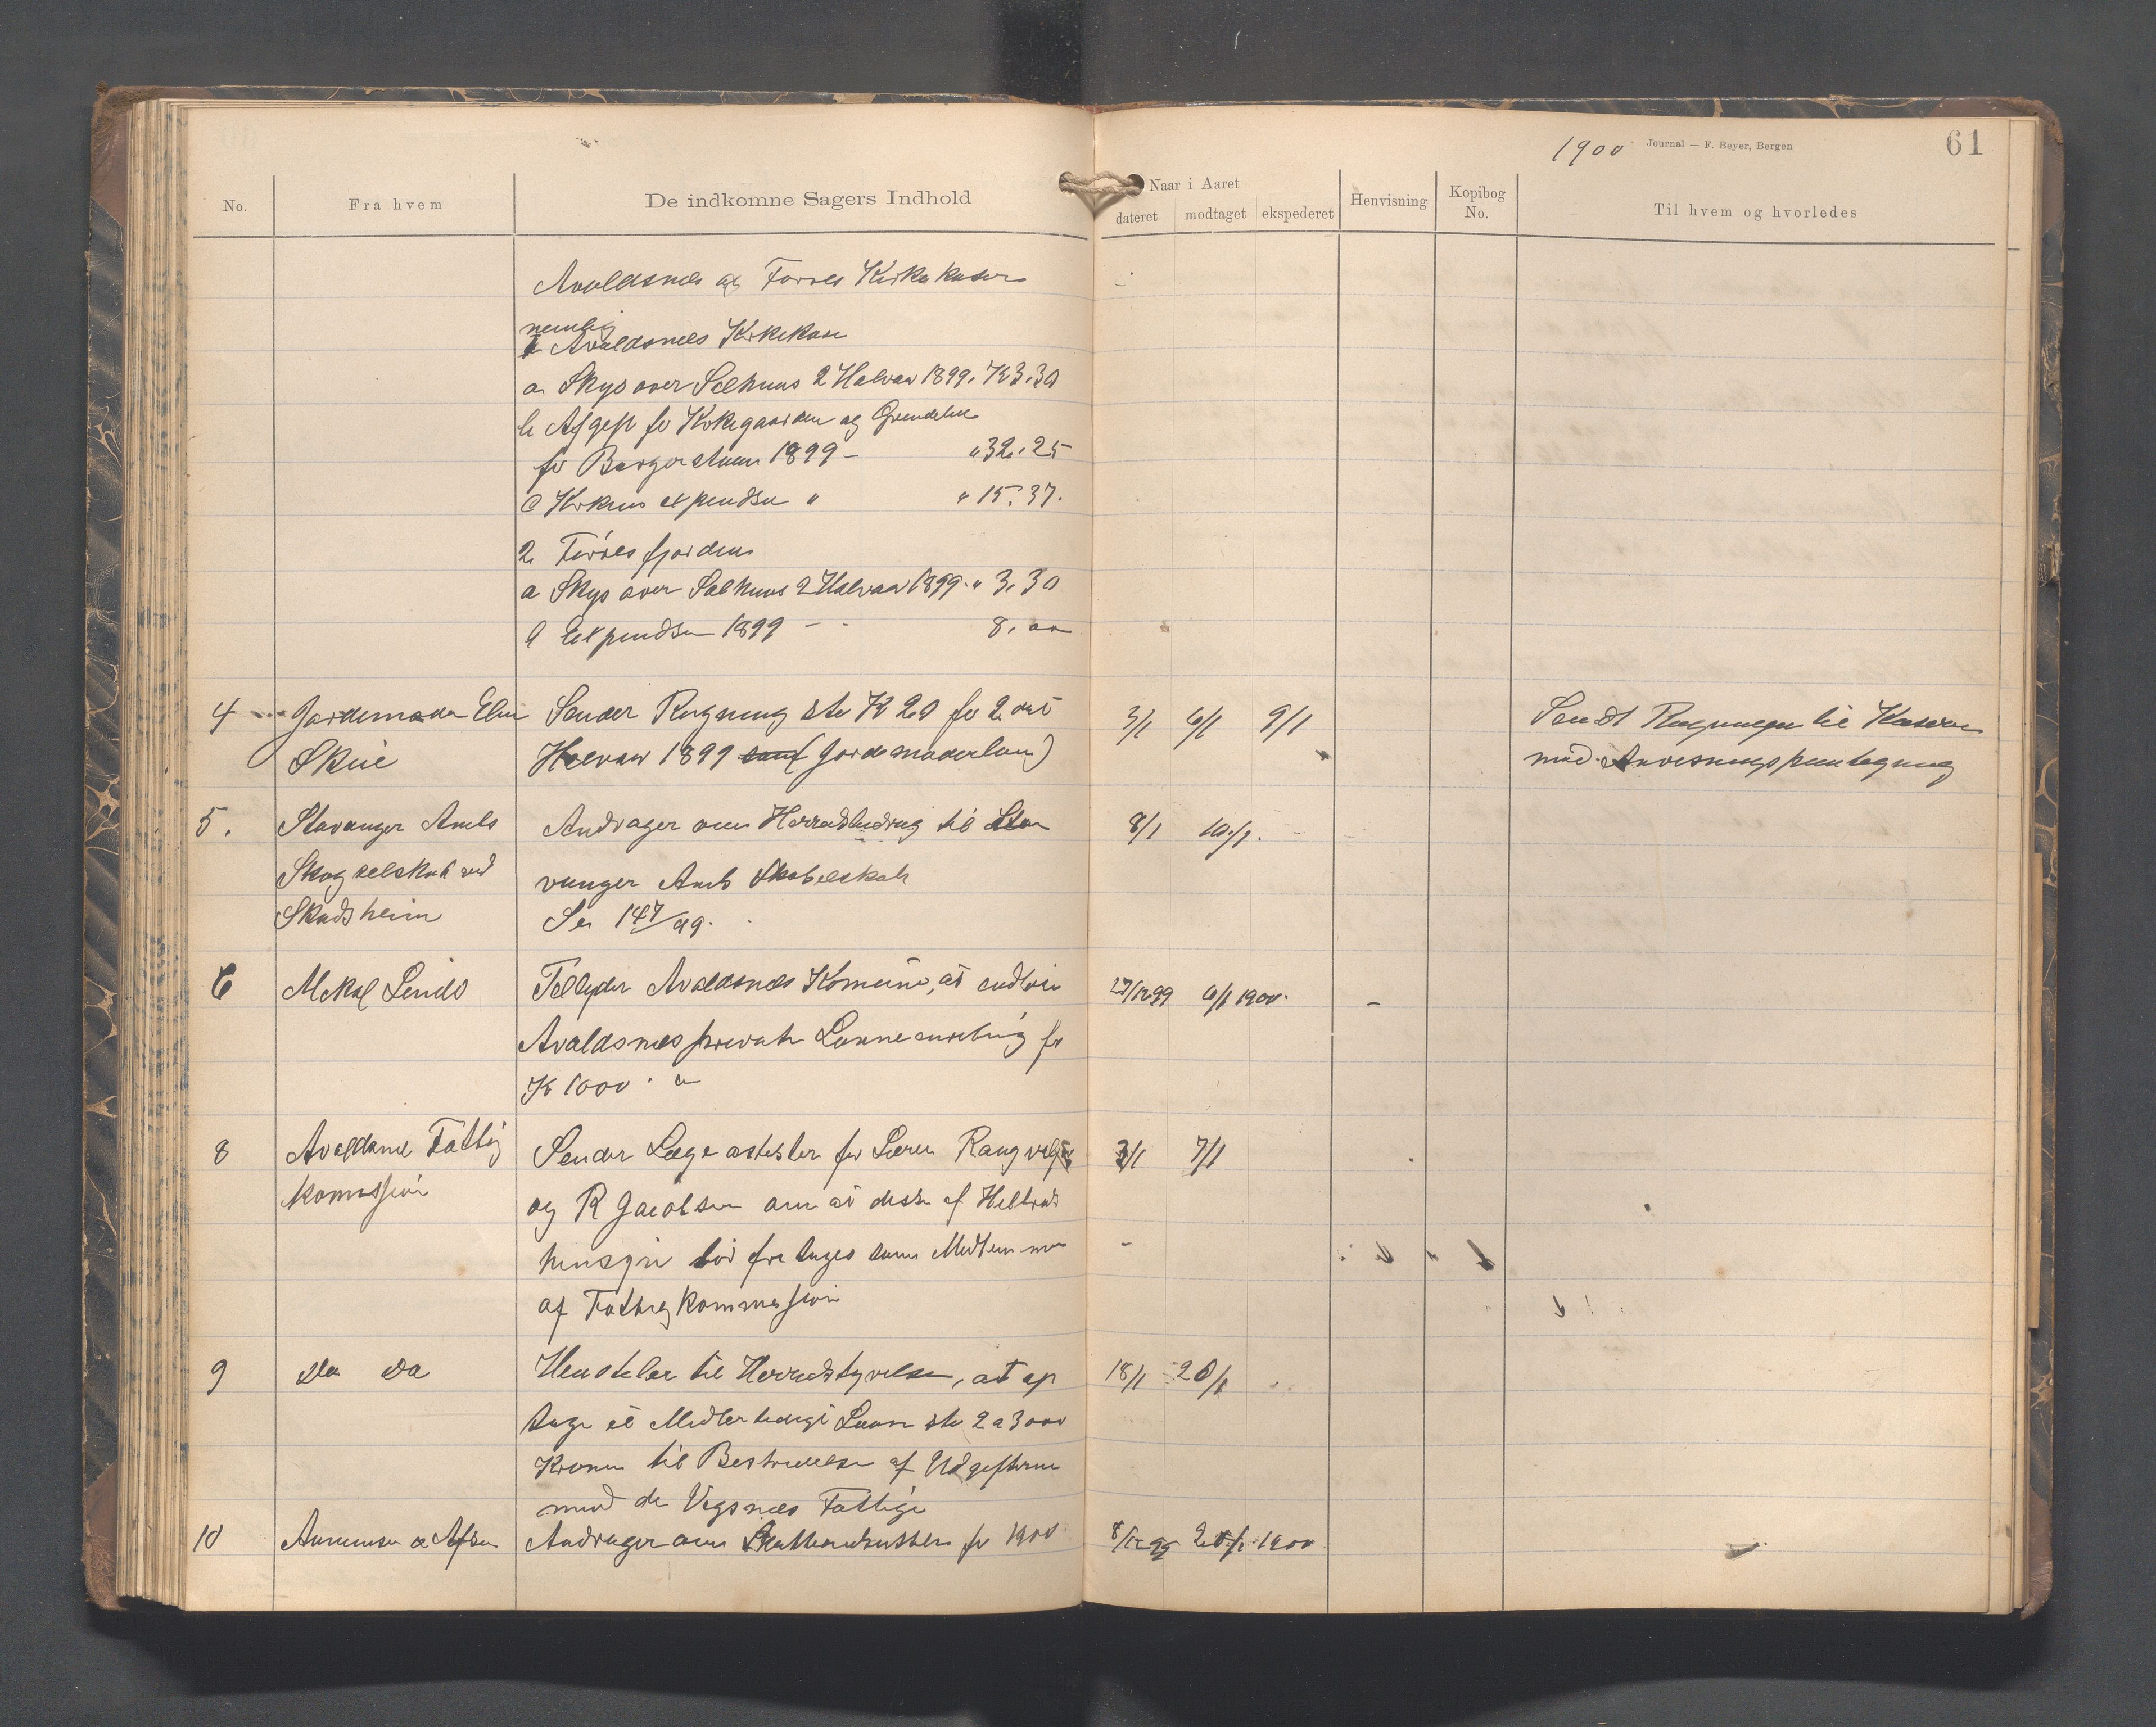 1900 Journal — F. Beyer, Bergen 61
No. Fra hvem De indkomne Sagers Indhold Naar i Aaret dateret modtaget ekspederet Henvisning Kopibog No. Til hvem og hvorledes
Avaldsnes og Førres Kirkekasser
nemlig
1 Avaldsnes Kirkekasse
a Skys over Salhuus 2 Halvaar 1899. Kr 3.30
b Afgift for Kirkegaarden og
for 1899 – " 32.25
c Kirkens expendser " " 15.37.
2 Førresfjordens
a Skys over Salhuus 2 Halvaar 1899. " 3.30
b Expendser 1899 – - 8.00
4 Jordemoder Skeie Sender Regning stor Kr 20 for 2det 3/1 6/1 9/1 Sendt Regningen til Kasseren
Halvaar 1899 (Jordemoderløn) med Anvisningspaategning
5. Stavanger Amts Andrager om Herredsbidrag til Sta 8/1 10/1.
Skogselskab ved vanger Amts Skogselskab
Skadsheim Se 147/99.
6 Mikal Lindø Tilbyder Avaldsnes Komune, at indløse 27/12 99 6/1 1900.
Avaldsnes private Laaneindretning for
Kr 1000
8 Avaldsnes Fattig Sender Lægeattester for Lærer 3/1 7/1
komission og R Jacobsen om at disse af Helbreds
hensyn bør fritages som Medlemmer
af Fattigkommission
9 Da Da Henstiller til Herredstyrelsen, at op 18/1 20/1
tage et Midlertidigt Laan stor 2 a 3000
Kroner til Bestridelse af Udgifterne
med de Vigsnes Fattige
10 Andrager om for 1900 8/12 99 20/1 1900